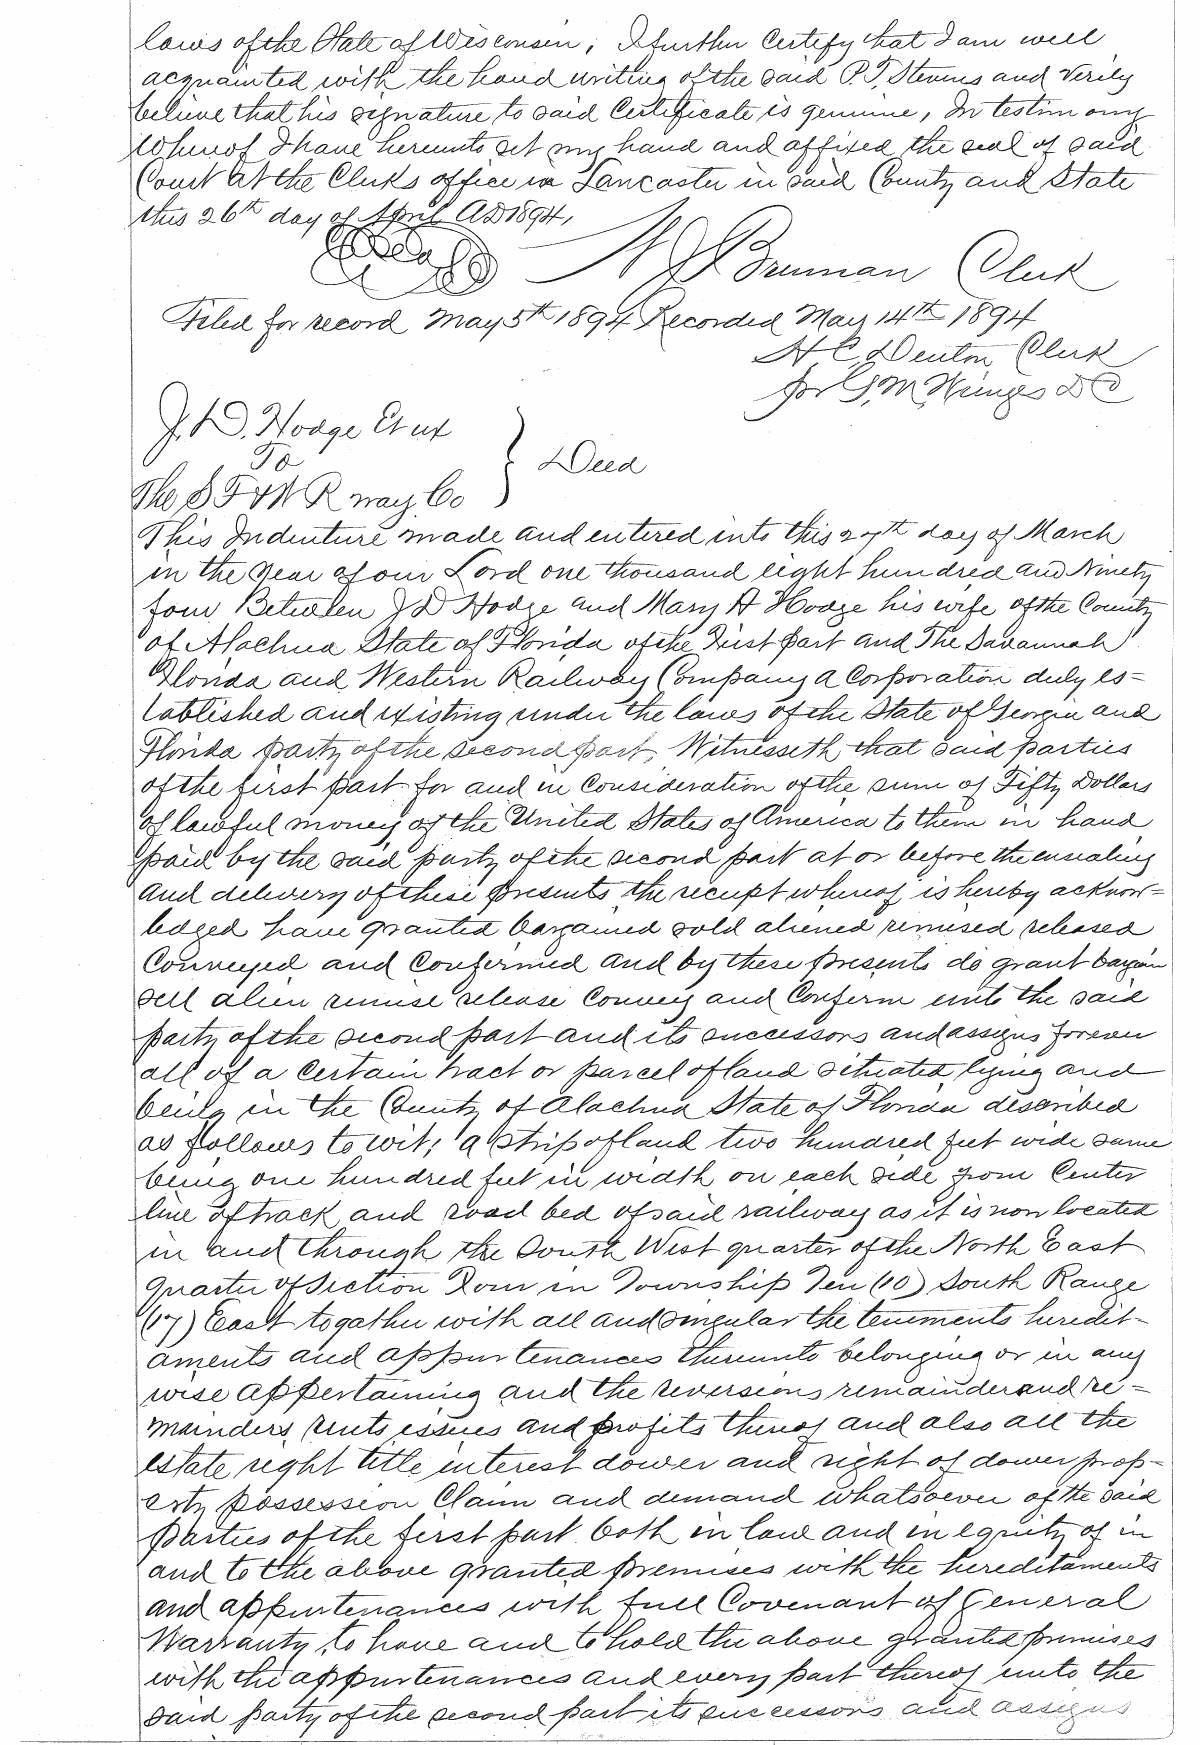 laws of the State of Wisconsin, I further Certify that I am well
acquainted with the hand writing of the said P.T. Stevens and Verily
believe that his signature to said Certificate is genuine, In testimony
Whereof I have hereunto set my hand and affixed the seal of said
Court at the Clerks office in Lancaster in said County and State
this 26th day of April AD 1894,
Seal Brennan Clerk
Filed for record May 5th 1894 Recorded May 14th 1894
H C Denton Clerk
for G.M. DC
J. D. Hodge Et ux
To
Deed
The S F & W R way Co
This Indenture made and entered into this 27th day of March
in the Year of our Lord one thousand eight hundred and Ninety
four Between J D Hodge and Mary A Hodge his wife of the County
of Alachua State of Florida of the First part and The Savannah
Florida and Western Railway Company a Corporation duly es=
tablished and existing under the laws of the State of Georgia and
Florida party of the second part, Witnesseth that said parties
of the first part for and in Consideration of the sum of Fifty Dollars
of lawful money of the United States of America to them in hand
paid by the said party of the second part at or before the ensealing
and delivery of these presents the receipt whereof is hereby acknow=
ledged have granted bargained sold aliened remised released
Conveyed and Confirmed and by these presents do grant bargain
sell alien remise release Convey and Confirm unto the said
party of the second part and its successors and assigns forever
all of a Certain tract or parcel of land situated lying and
being in the County of Alachua State of Florida described
as follows to wit; a strip of land two hundred feet wide same
being one hundred feet in width on each side from Center
line of track and road bed of said railway as it is now located
in and through the South West quarter of the North East
quarter of Section Four in Township Ten (10) South Range
(17) East togather with all and singular the tenements heredit-
aments and appurtenances thereunto belonging or in any
wise appertaining and the reversions remainder and re=
mainders, rents issues and profits thereof and also all the
estate right title interest dower and right of dower prop-
erty possession Claim and demand whatsoever of the said
parties of the first part both in law and in equity of in
and to the above granted premises with the hereditaments
and appurtenances with full Covenant of General
Warranty, to have and to hold the above granted premises
with the appurtenances and every part thereof unto the
said party of the second part its successors and assigns